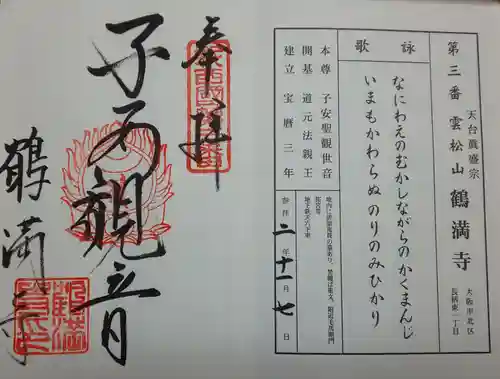 奉拝
子安観世音
鶴満寺
第三番 雲松山 鶴満寺
天台眞盛宗
大阪市北区
長柄東一丁目
詠歌
なにわえのむかしながらのかくまんじ
いまもかわらぬのりのみひかり
本尊 子安聖観世音
開基 道元法親王
建立 宝暦三年
参拝 二年十一月七日